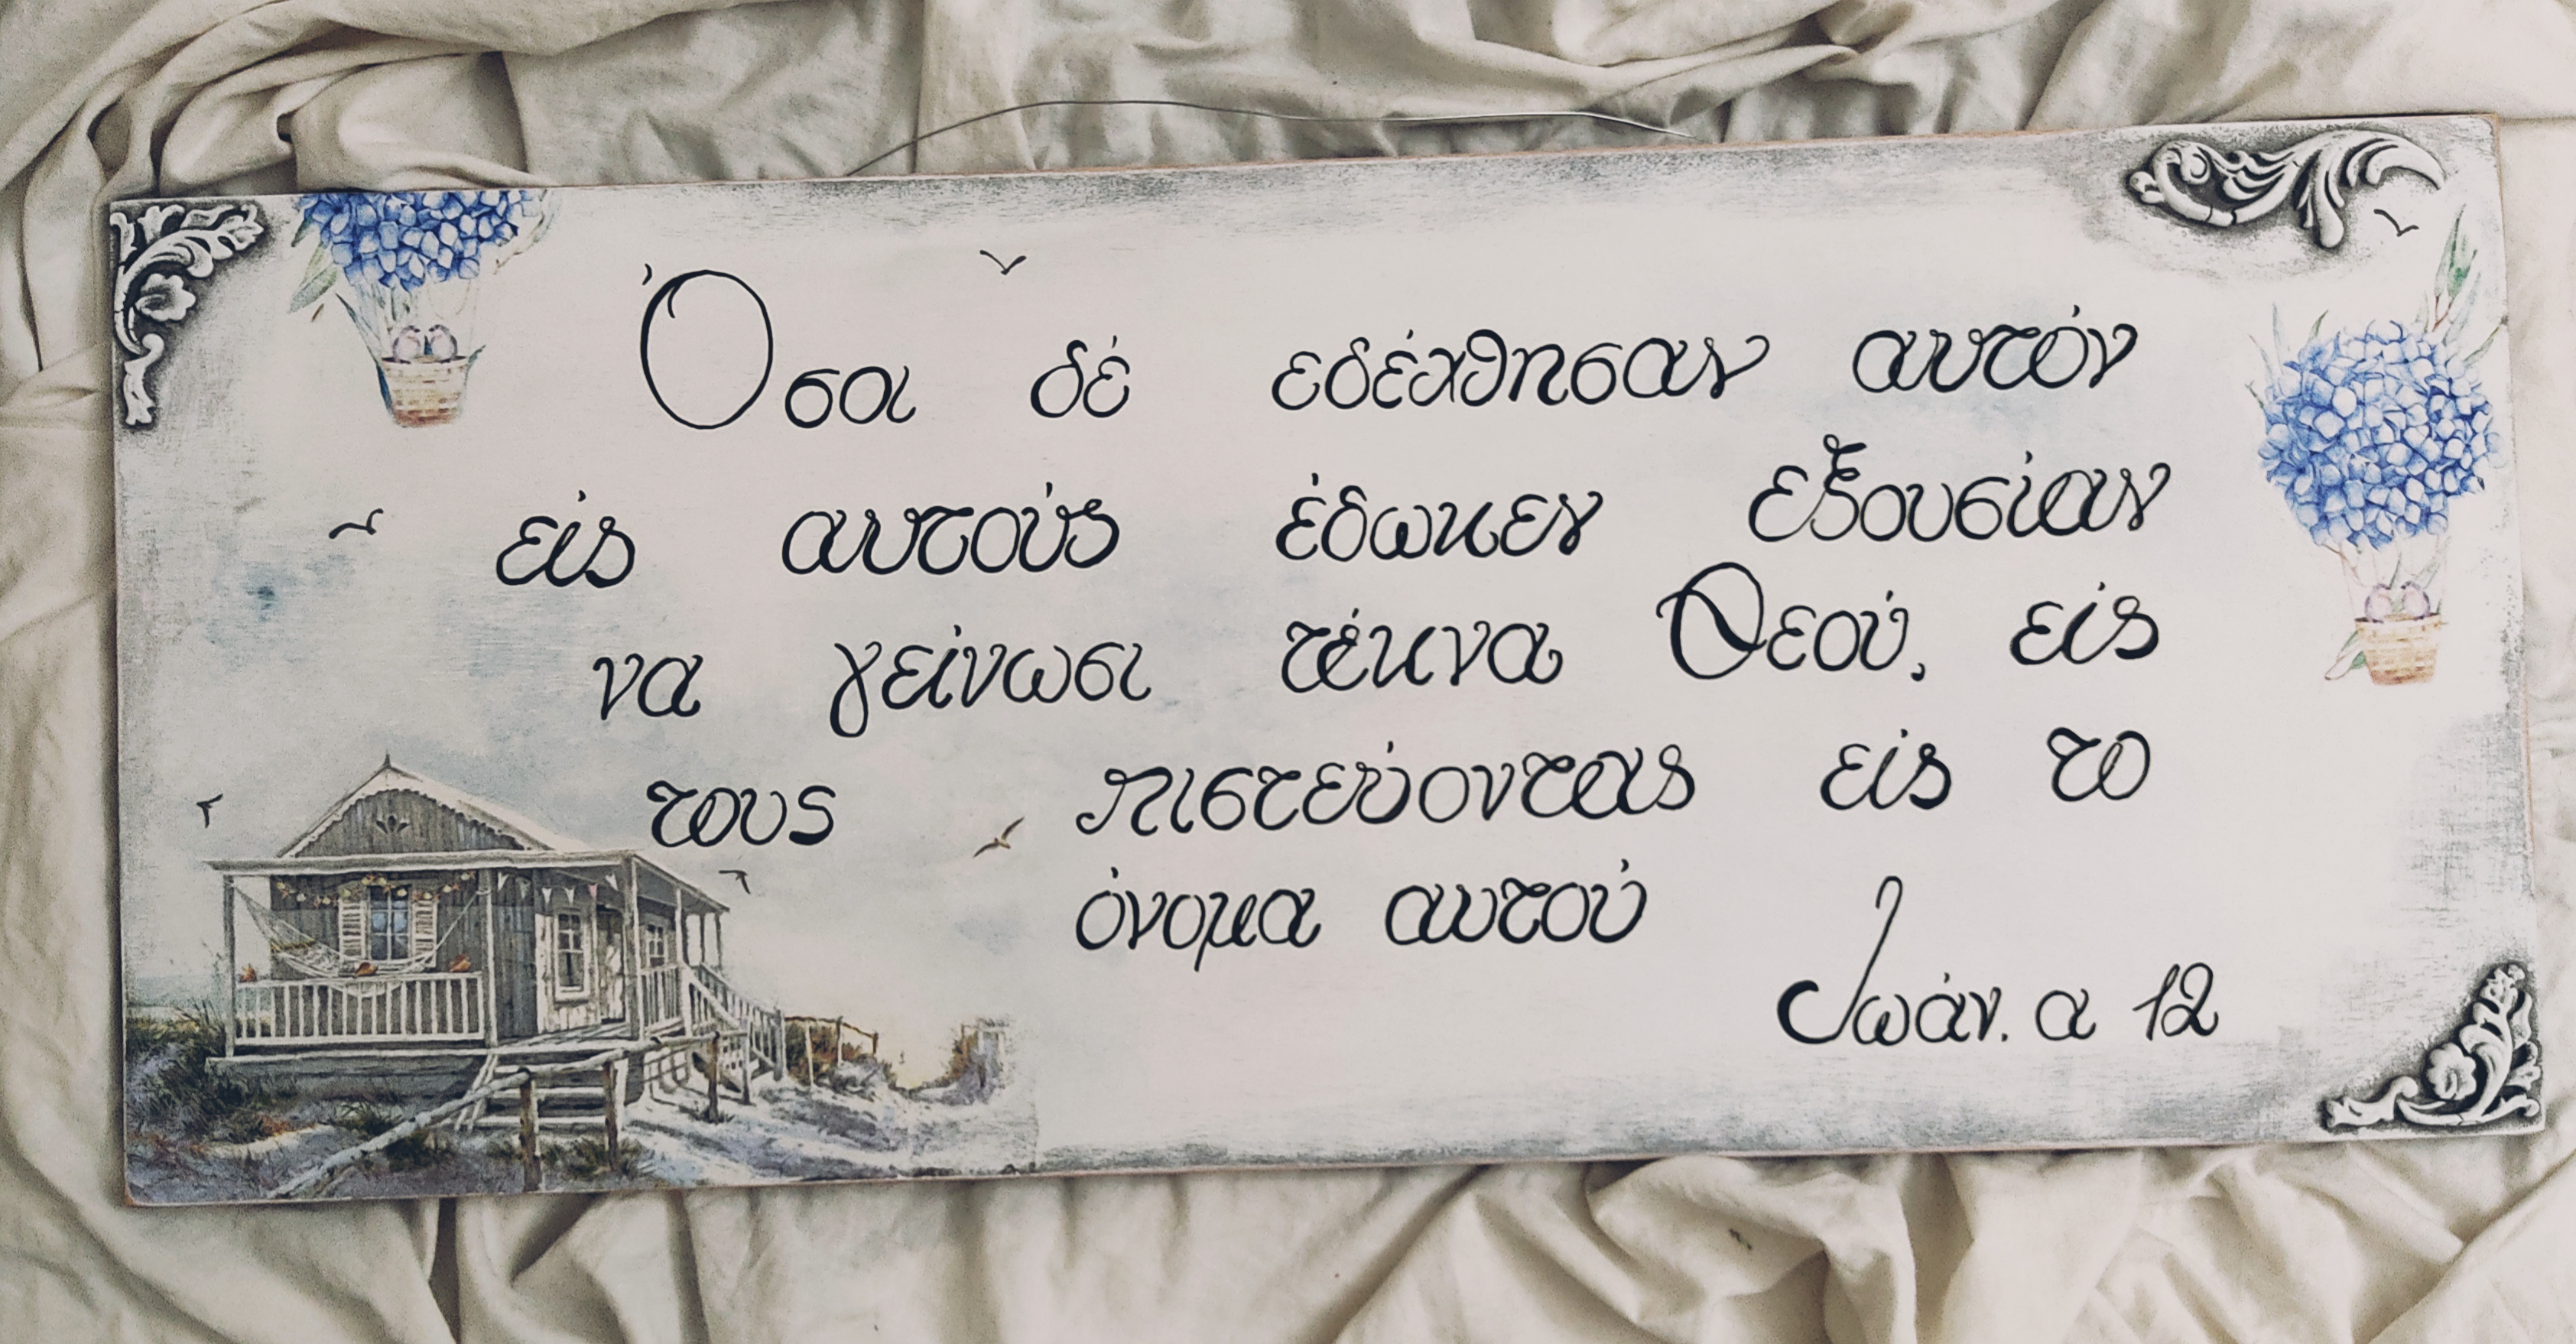 Όσα δέ εδέχθησαν αυτόν
είς αυτούς έδωκεν εξουσίαν
να γείνωσι τέκνα Θεού, είς
τους πιστεύοντας είς το
όνομα αυτού
Ιωάν. α 12